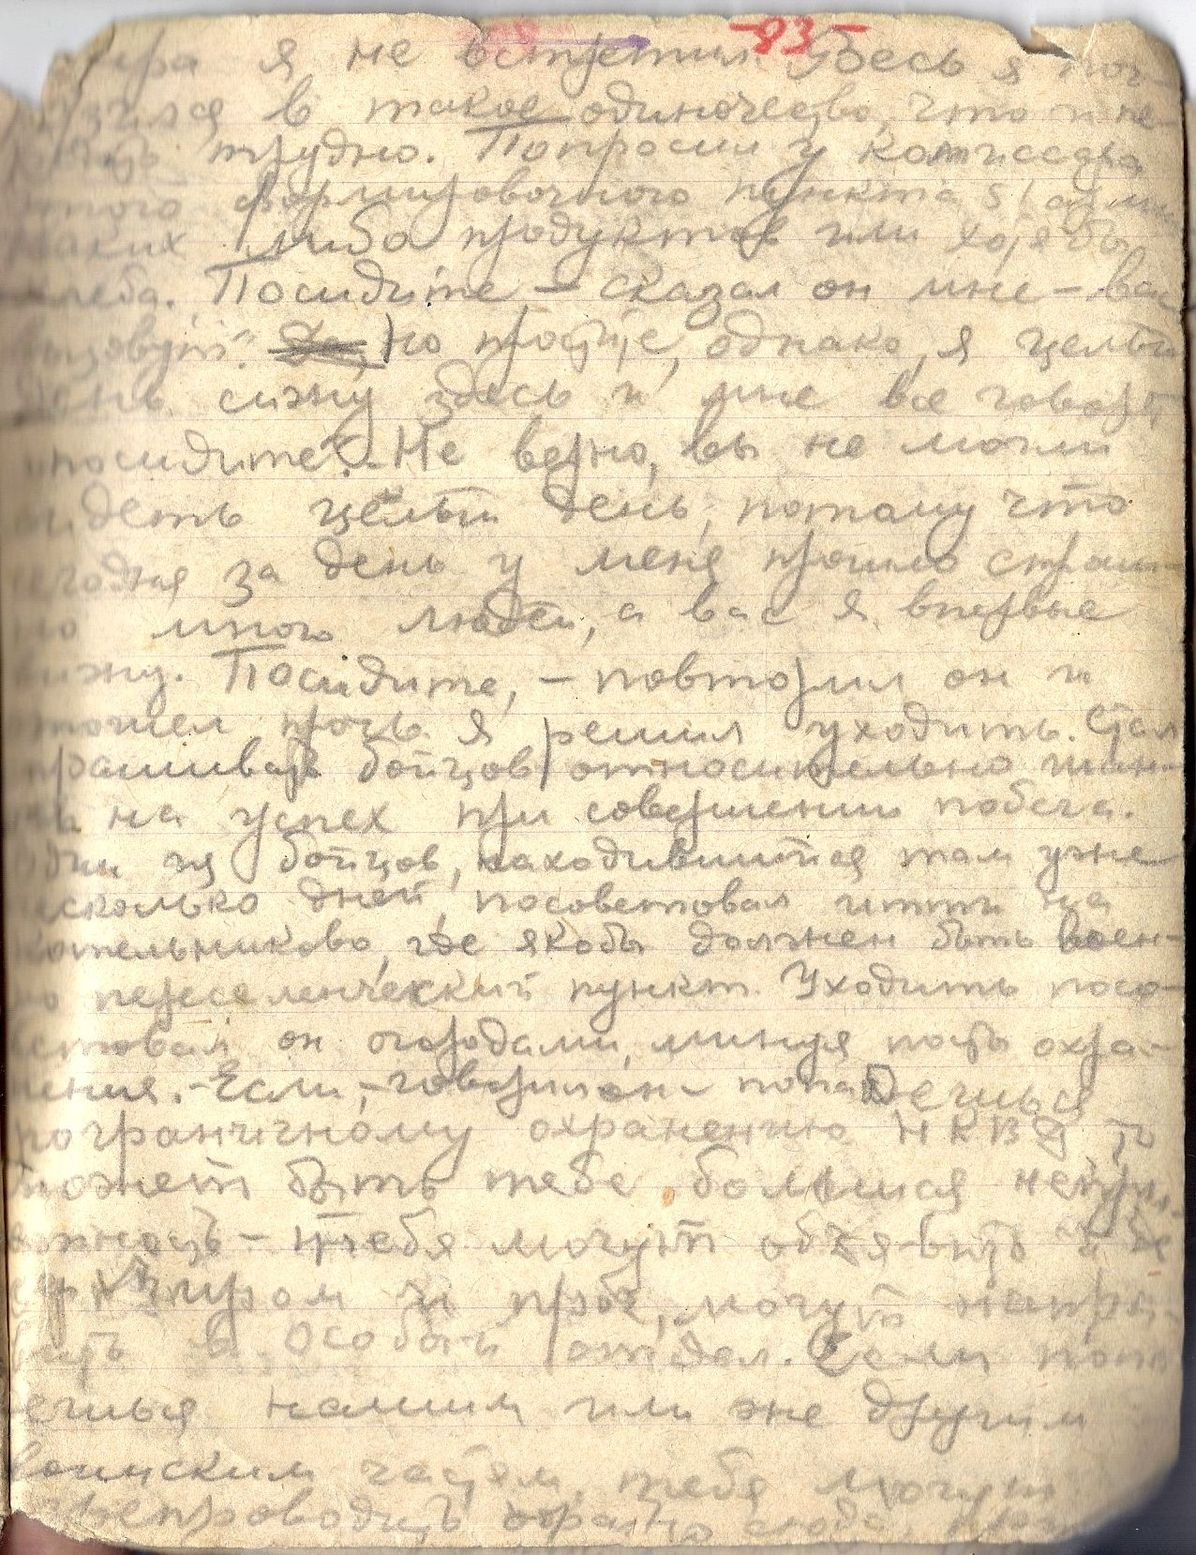 -93-
я не встретил. Здесь я пог-
рузился в такое одиночество, что и пе-
редать трудно. Попросил у комиссара
этого формировочного пункта
каких либо продуктов или хотя бы
хлеба. Посидите, - сказал он мне - вас
вызовут". Но простите, однако, я целый
день сижу здесь и мне все говорят
"посидите". - Не верно, вы не могли
сидеть целый день, потому что
сегодня за день у меня прошло страш-
но много людей, а вас я впервые
вижу. Посидите, - повторил он и
пошел прочь. Я решил уходить. Стал
спрашивать бойцов относительно шан-
са на успех при совершении побега.
Один из бойцов, находившийся там уже
несколько дней, посоветовал итти на
Котельниково, где якобы должен быть воен-
но переселенческий пункт. Уходить посо-
ветовал он огородами, минуя посты охра-
нения. - Если, - говорил он - попадешься
пограничному охранению НКВД, то
может быть тебе большая непри-
ятность - тебя могут объявить и де-
зертиром и проч, могут напра-
вить в Особый отдел. Если попа-
дешься нашим или же другим
воинским частям, тебя могут
препроводить обратно сюда,